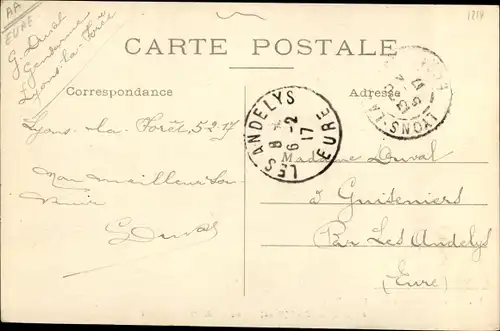 AA
EURE
G. Duval
Gendarme
Lyons-la-Forêt
1214
CARTE POSTALE
Correspondance
Adresse
Lyons-la-Forêt, 5-2-17
Mon meilleur Sou-
venir
GDuval
LES ANDELYS
8
6-2
17
EURE
LYONS-LA-
EURE
Madame Duval
à Guiseniers
Par Les Andelys
(Eure)